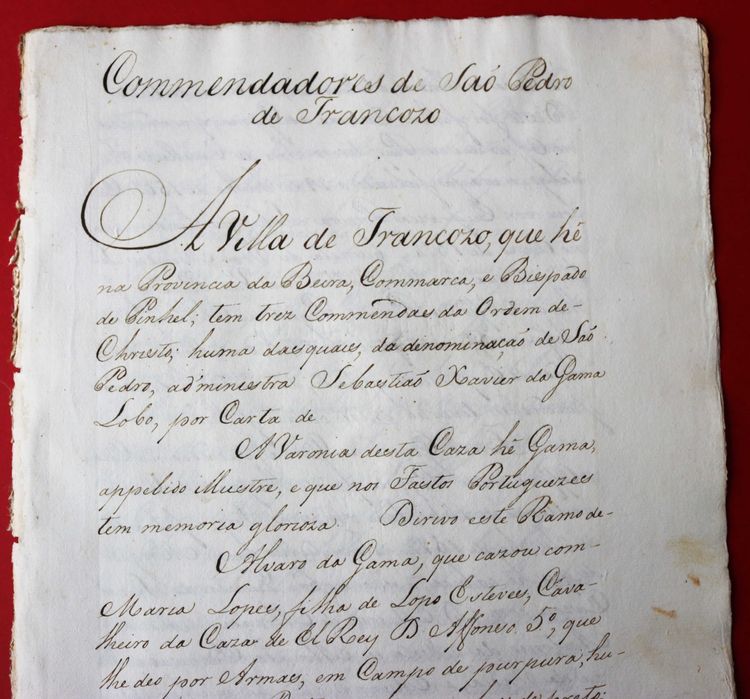 Commendadores de Saó Pedro
de Trancozo
A Villa de Trancozo, que hé
na Provincia da Beira, Commarca, e Bispado
de Pinhel; tem trez Commendas da Ordem de-
Christo; huma dasquaes, da denominaçaõ de Saõ
Pedro, administra Sebastiaõ Xavier da Gama
Lobo, por Carta de
A Varonia desta Caza hé Gama,
appelido illustre, e que nos Fastos Portuguezes
tem memoria glorioza. Dirivo este Ramo de-
Alvaro da Gama, que cazou com-
Maria Lopes, filha de Lopo Esteves, Cava-
lheiro da Caza de El Rey D Affonso 5º, que
lhe deo por Armas, em Campo de purpura, hu-